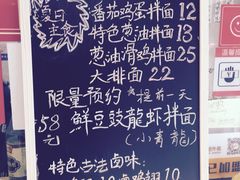 夏日
主食
番茄鸡蛋拌面12
特色葱油拌面13
葱油滑鸡拌面25
大排面 22
限量预约 提前一天
58元 鲜豆豉龍虾拌面
(小青龍)
特色古法卤味:
卤鸡翅10